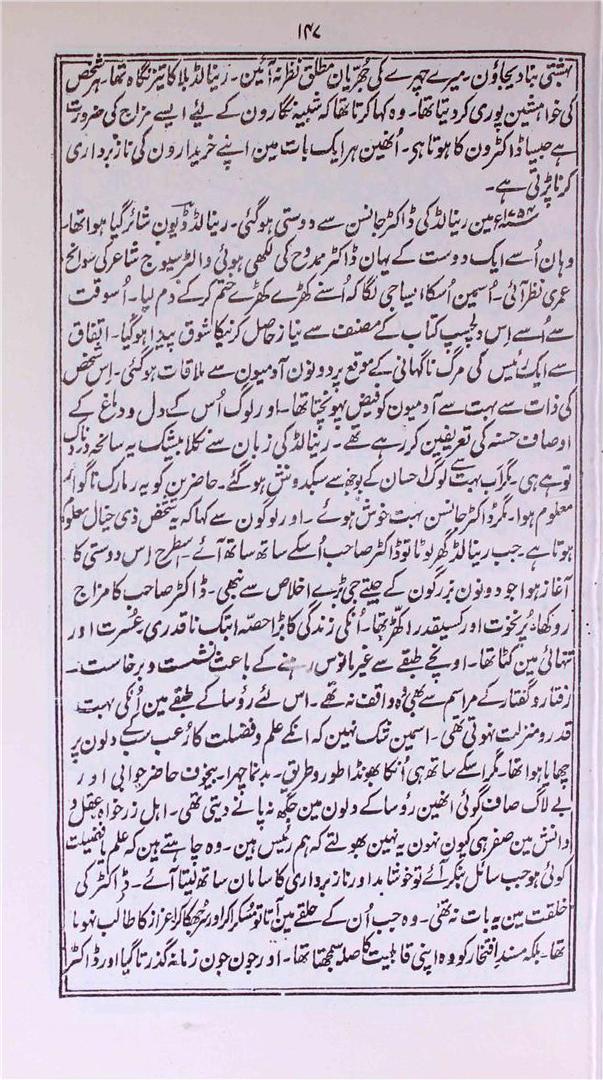 ۱۴۷
بہشتی بنا دیجاؤن۔ میرے چہرے کی جھریان مطلق نظر نہ آئین۔ رینالڈ بلا کا تیز نگاہ تھا۔ ہر شخص
کی خواہشین پوری کر دیتا تھا۔ وہ کہا کرتا تھا کہ شبیہ نگارون کے لیئے ایسے مزاج کی ضرورت
ہے جیسا ڈاکٹرون کا ہوتا ہی۔ اُنھین ہر ایک بات مین اپنے خریدارون کی ناز برداری
کرنا پڑتی ہے۔
۱۷۵۴ء مین رینالڈ کی ڈاکٹر جانسن سے دوستی ہو گئی۔ رینالڈ ڈیون شائر گیا ہوا تھا۔
وہان اُسے ایک دوست کے یہان ڈاکٹر ممدوح کی لکھی ہوئی والٹر سیوج شاعر کی سوانح
عمری نظر آئی۔ اُسمین اُسکا ایسا جی لگا کہ اُسنے کھڑے کھڑے ختم کر کے دم لیا۔ اُسوقت
سے اُسے اِس دلچسپ کتاب کے مصنف سے نیاز حاصل کرنیکا شوق پیدا ہو گیا۔ اتفاق
سے ایک رئیس کی مرگ ناگہانی کے موقع پر دونون آدمیون سے ملاقات ہو گئی۔ اِس شخص
کی ذات سے بہت سے آدمیون کو فیض پہونچتا تھا۔ اور لوگ اُس کے دل و دماغ کے
اوصاف حسنہ کی تعریفین کر رہے تھے۔ رینالڈ کی زبان سے نکلا بیشک یہ سانحہ دردناک
تو ہے ہی۔ مگر اب بہت سے لوگ احسان کے بوجھ سے سبکدوش ہو گئے۔ حاضرین کو یہ ریمارک ناگوار
معلوم ہوا۔ مگر ڈاکٹر جانسن بہت خوش ہوئے۔ اور لوگون سے کہا کہ یہ شخص ذی خیال معلوم
ہوتا ہے۔ جب رینالڈ گھر لوٹا تو ڈاکٹر صاحب اُسکے ساتھ ساتھ آئے۔ اسطرح اِس دوستی کا
آغاز ہوا جو دونون بزرگون کے جیتے جی بڑے اخلاص سے نبھی۔ ڈاکٹر صاحب کا مزاج
روکھا، پُر نخوت اور کسیقدر اکھڑ تھا۔ اُنکی زندگی کا بڑا حصّہ ابتک ناقدری عُسرت اور
تنہائی مین کٹا تھا۔ اونچے طبقے سے غیر مانوس رہنے کے باعث نشست و برخاست۔
رفتار و گفتار کے مراسم سے بھی وُہ واقف نہ تھے۔ اس لئے رؤسا کے طبقے مین اُنکی بہت
قدر و منزلت نہوتی تھی۔ اسمین شک نہین کہ انکے علم و فضلت کا رُعب سب کے دلون پر
چھایا ہوا تھا۔ مگر اسکے ساتھ ہی اُنکا بھونڈا طور و طریق۔ بدنما چہرا۔ بیخوف حاضر جوابی اور
بے لاگ صاف گوئی انھین رؤسا کے دلون مین جگھ نہ پانے دیتی تھی۔ اہل زر خواہ عقل و
دانش مین صفر ہی کیون نہون یہ نہین بھولتے کہ ہم رئیس ہین۔ وہ چاہتے ہین کہ علم یا فضیلت
کوئی ہو جب سائل بنکر آئے تو خوشامد اور ناز برداری کا سامان ساتھ لیتا آئے۔ ڈاکٹر کی
خلقت مین یہ بات نہ تھی۔ وہ جب اُن کے حلقے مین آتا تو مسکرا کر اور سر جھکا کر اعزاز کا طالب نہوتا
تھا۔ بلکہ مسندِ افتخار کو وہ اپنی قابلیت کا صلہ سمجھتا تھا۔ اور جون جون زمانہ گذرتا گیا اور ڈاکٹر